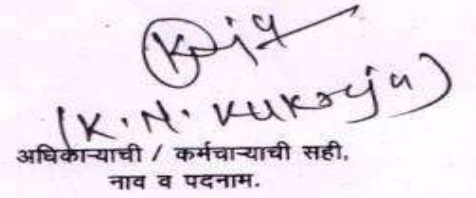 (K. N. Kukreja)
अधिकाऱ्याची / कर्मचाऱ्याची सही,
नाव व पदनाम.